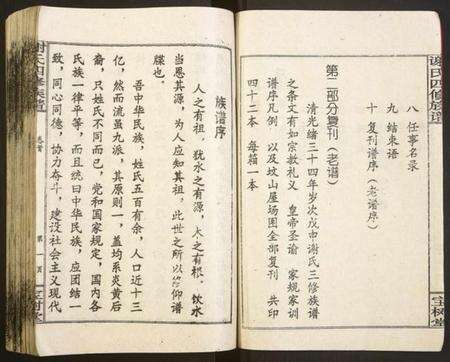 谢氏四修族谱
八 任事名录
九 结束语
十 复刊谱序（老谱序）
第二部分复刊（老谱）
清光绪三十四年岁次戊申谢氏三修族谱
之条文有如宗教礼义 皇帝圣谕 家规家训
谱序凡例 以及坟山屋场图全部复刊 共印
四十二本 每箱一本
宝树堂
族谱序
人之有祖，犹水之有源，木之有根，饮水
当思其源，为人应知其祖，此世之所以修仰谱
牒也。
吾中华民族，姓氏五百有余，人口近十三
亿，然而流虽九派，其原则一，盖均系炎黄后
裔，只姓氏不同而已，党和国家规定，国内各
民族一律平等，而且统曰中华民族，应团结一
致，同心同德，协力奋斗，建设社会主义现代
谢氏四修族谱
卷首
第一页
宝树堂